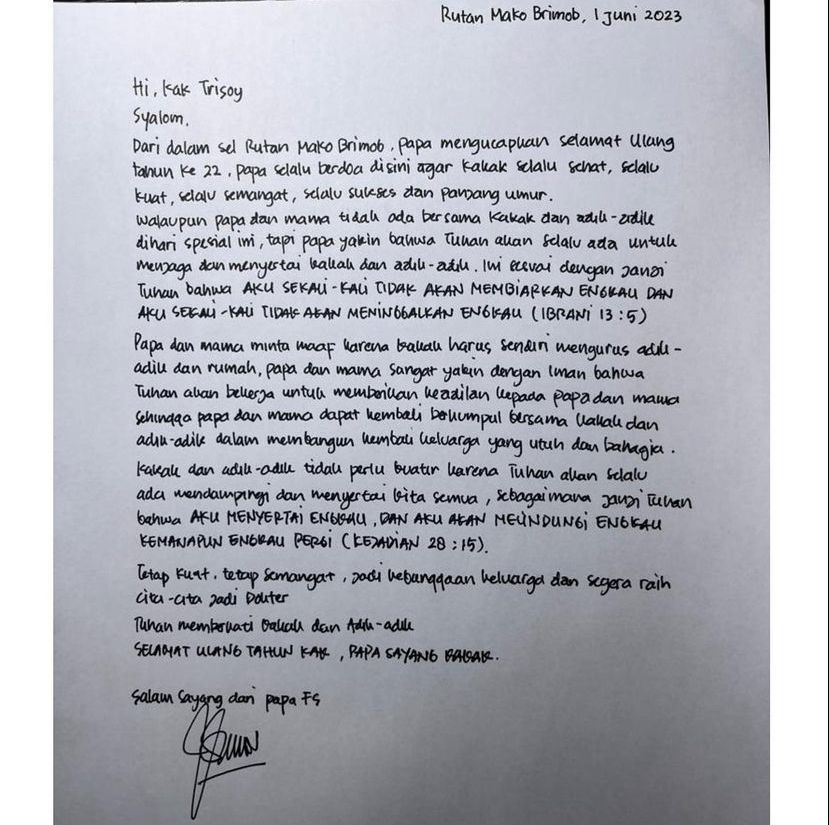 Rutan Mako Brimob, 1 Juni 2023
Hi, Kak Trisoy
Syalom.
Dari dalam sel Rutan Mako Brimob, papa mengucapkan selamat Ulang
tahun ke 22, papa selalu berdoa disini agar Kakak selalu sehat, selalu
kuat, selalu semangat, selalu sukses dan panjang umur.
Walaupun papa dan mama tidak ada bersama Kakak dan adik-adik
dihari spesial ini, tapi papa yakin bahwa Tuhan akan selalu ada untuk
menjaga dan menyertai kakak dan adik-adik. Ini sesuai dengan janji
Tuhan bahwa AKU SEKALI-KALI TIDAK AKAN MEMBIARKAN ENGKAU DAN
AKU SEKALI-KALI TIDAK AKAN MENINGGALKAN ENGKAU (IBRANI 13:5)
Papa dan mama minta maaf karena kakak harus sendiri mengurus adik-
adik dan rumah, papa dan mama sangat yakin dengan Iman bahwa
Tuhan akan bekerja untuk memberikan keadilan kepada papa dan mama
sehingga papa dan mama dapat kembali berkumpul bersama kakak dan
adik-adik dalam membangun kembali keluarga yang utuh dan bahagia.
Kakak dan adik-adik tidak perlu kuatir karena Tuhan akan selalu
ada mendampingi dan menyertai kita semua, sebagaimana janji Tuhan
bahwa AKU MENYERTAI ENGKAU, DAN AKU AKAN MELINDUNGI ENGKAU
KEMANAPUN ENGKAU PERGI (KEJADIAN 28:15).
Tetap kuat, tetap semangat, jadi kebanggaan keluarga dan segera raih
cita-cita jadi Dokter
Tuhan memberkati kakak dan Adik-adik
SELAMAT ULANG TAHUN KAK, PAPA SAYANG KAKAK.
Salam Sayang dari papa FS